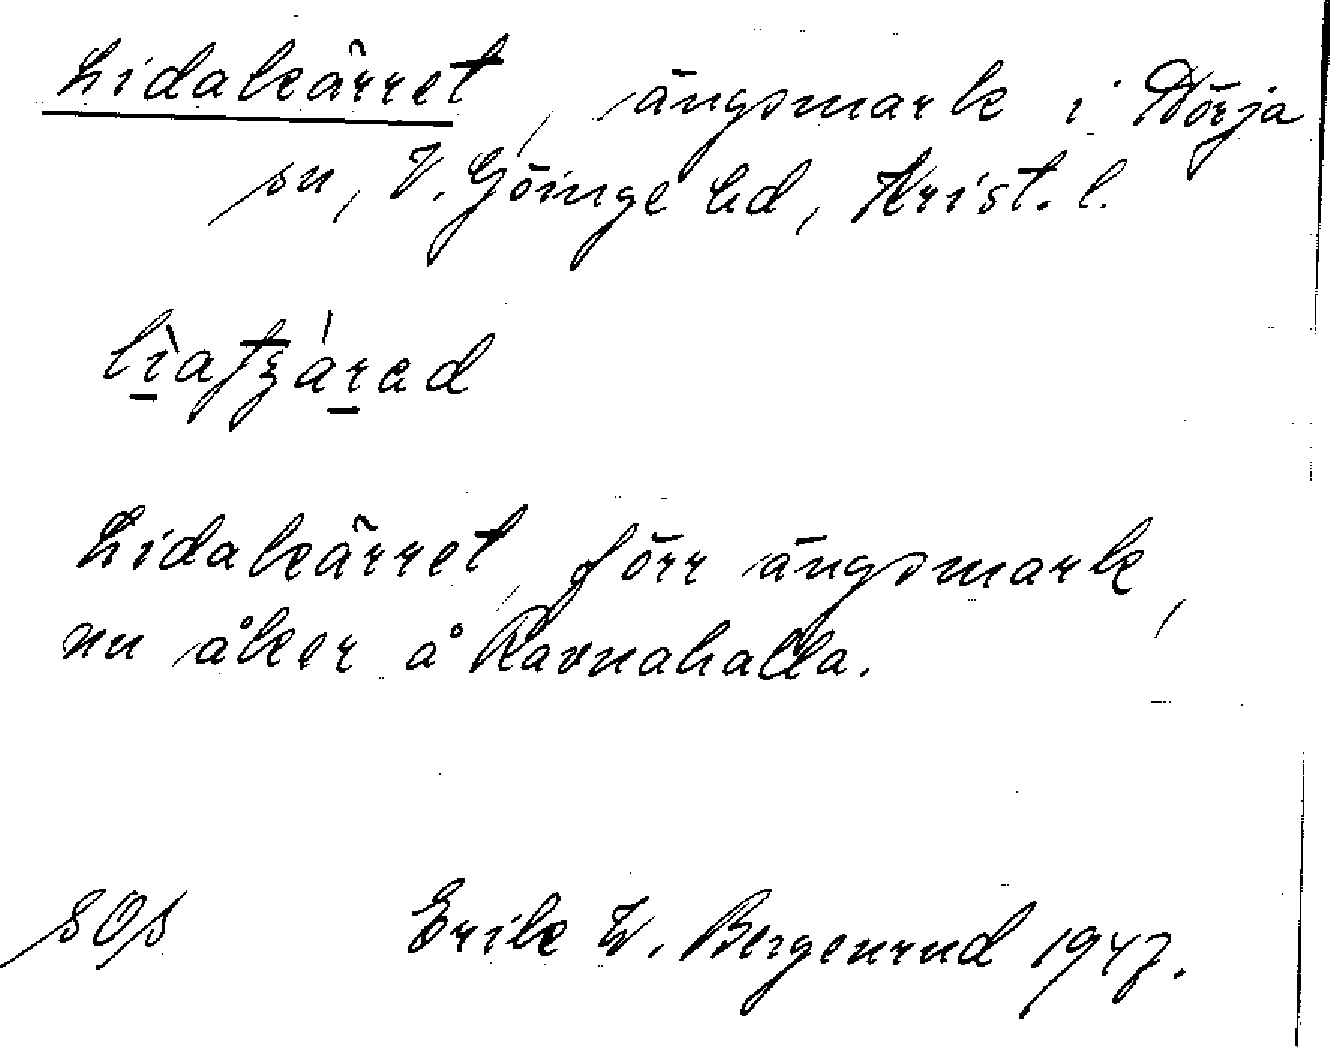 Lidakärret, ängsmark i Nörja
sn, V. Göinge hd, Krist. l.
Lidakärret, förr ängsmark,
nu åker å Ravnahalla.
sOs Erik W. Bergenrud 1947.